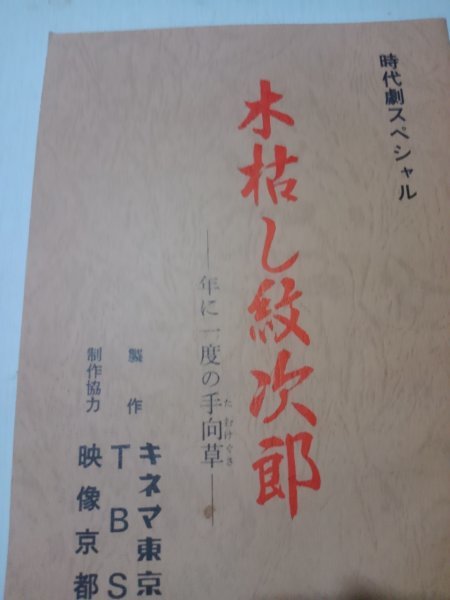 時代劇スペシャル
木枯し紋次郎
―年に一度の手向草―
たむけぐさ
製作
キネマ東京
TBS
制作協力
映像京都